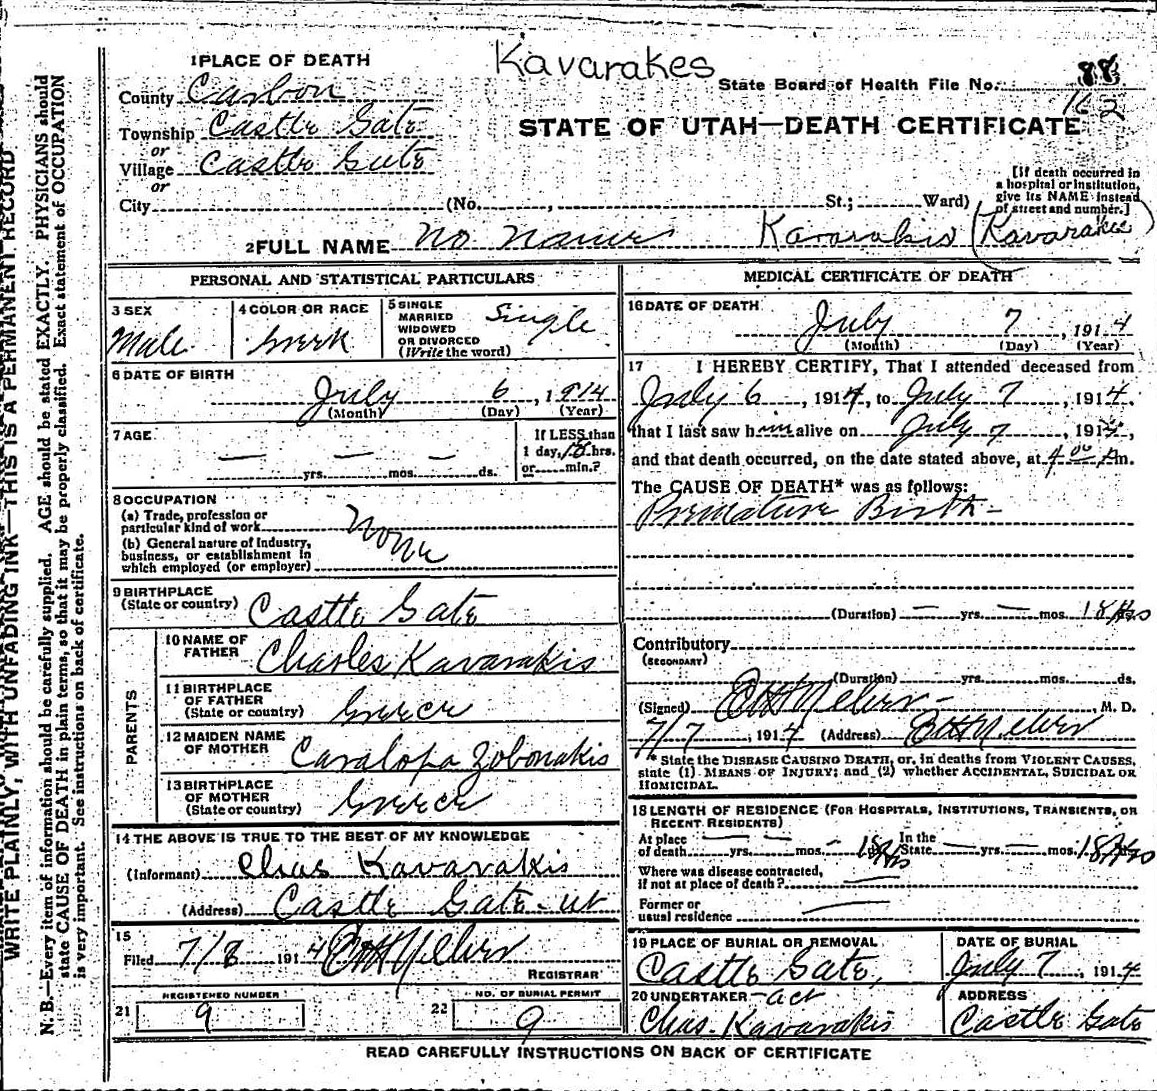 Kavarakes
1 PLACE OF DEATH
State Board of Health File No. 88
162
County Carbon
Township Castle Gate
STATE OF UTAH—DEATH CERTIFICATE
or
Village Castle Gate
or
City (No. , St.; Ward)
[If death occurred in
a hospital or institution,
give its NAME instead
of street and number.]
2 FULL NAME No Name Kavarakis (Kavarakis)
PERSONAL AND STATISTICAL PARTICULARS
3 SEX
Male
4 COLOR OR RACE
Greek
5 SINGLE
MARRIED
WIDOWED
OR DIVORCED
(Write the word)
Single
6 DATE OF BIRTH
July 6, 1914
(Month) (Day) (Year)
7 AGE
— yrs. — mos. — ds.
If LESS than
1 day, 18 hrs.
or min.?
8 OCCUPATION
(a) Trade, profession or
particular kind of work
None
(b) General nature of industry,
business, or establishment in
which employed (or employer)
9 BIRTHPLACE
(State or country) Castle Gate
PARENTS
10 NAME OF
FATHER Charles Kavarakis
11 BIRTHPLACE
OF FATHER
(State or country) Greece
12 MAIDEN NAME
OF MOTHER Caralopa Zobonakis
13 BIRTHPLACE
OF MOTHER
(State or country) Greece
14 THE ABOVE IS TRUE TO THE BEST OF MY KNOWLEDGE
(Informant) Chas Kavarakis
(Address) Castle Gate - ut
15
Filed 7/8 1914
REGISTRAR
REGISTERED NUMBER
21 9
NO. OF BURIAL PERMIT
22 9
MEDICAL CERTIFICATE OF DEATH
16 DATE OF DEATH
July 7, 1914
(Month) (Day) (Year)
17 I HEREBY CERTIFY, That I attended deceased from
July 6, 1914, to July 7, 1914,
that I last saw him alive on July 7, 1914,
and that death occurred, on the date stated above, at 4 00 m.
The CAUSE OF DEATH* was as follows:
Premature Birth -
(Duration) — yrs. — mos. 18 Hrs
Contributory
(SECONDARY)
(Duration) yrs. mos. ds.
(Signed) M. D.
7/7, 1914 (Address)
* State the DISEASE CAUSING DEATH, or, in deaths from VIOLENT CAUSES,
state (1) MEANS OF INJURY; and (2) whether ACCIDENTAL, SUICIDAL OR
HOMICIDAL.
18 LENGTH OF RESIDENCE (FOR HOSPITALS, INSTITUTIONS, TRANSIENTS, OR
RECENT RESIDENTS)
At place
of death — yrs. — mos. - 18 Hrs
In the
State — yrs. — mos. 18 Hrs
Where was disease contracted,
if not at place of death? —
Former or
usual residence —
19 PLACE OF BURIAL OR REMOVAL
Castle Gate,
DATE OF BURIAL
July 7, 1914
20 UNDERTAKER - act
Chas. Kavarakis
ADDRESS
Castle Gate
READ CAREFULLY INSTRUCTIONS ON BACK OF CERTIFICATE
WRITE PLAINLY, WITH UNFADING INK—THIS IS A PERMANENT RECORD
N. B.—Every item of information should be carefully supplied. AGE should be stated EXACTLY. PHYSICIANS should
state CAUSE OF DEATH in plain terms, so that it may be properly classified. Exact statement of OCCUPATION
is very important. See instructions on back of certificate.